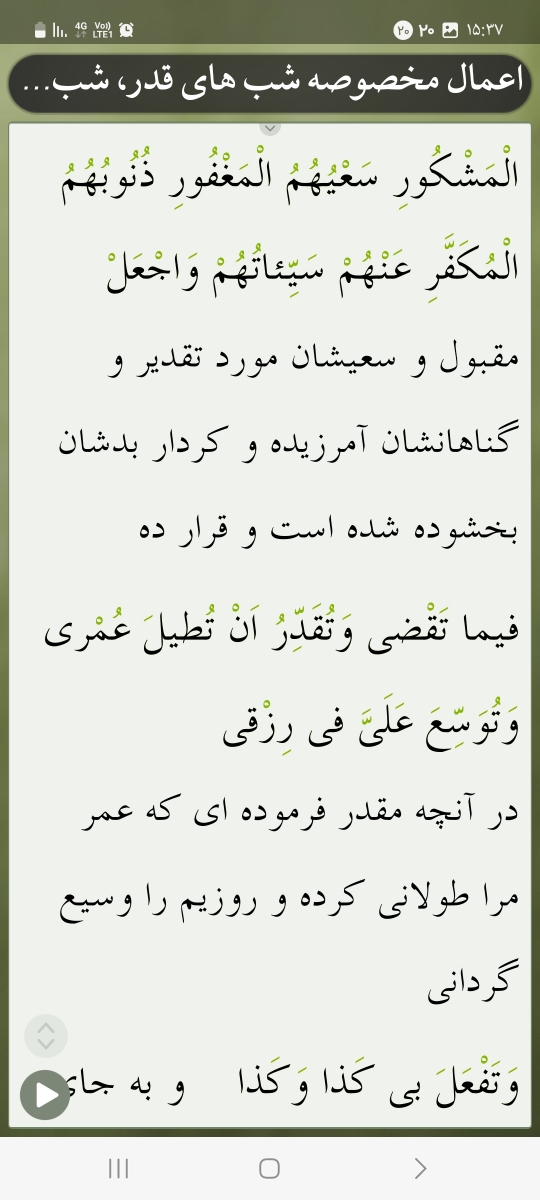 4G Vo)) LTE1 ۲۰ ۲۰ ۱۵:۳۷
اعمال مخصوصه شب های قدر، شب...
الْمَشْكُورِ سَعْيُهُمُ الْمَغْفُورِ ذُنُوبُهُمُ
الْمُكَفَّرِ عَنْهُمْ سَيِّئاتُهُمْ وَاجْعَلْ
مقبول و سعیشان مورد تقدیر و
گناهانشان آمرزیده و کردار بدشان
بخشوده شده است و قرار ده
فیما تَقْضی وَتُقَدِّرُ اَنْ تُطیلَ عُمْری
وَتُوَسِّعَ عَلَیَّ فی رِزْقی
در آنچه مقدر فرموده ای که عمر
مرا طولانی کرده و روزیم را وسیع
گردانی
وَتَفْعَلَ بی کَذا وَکَذا و به جای